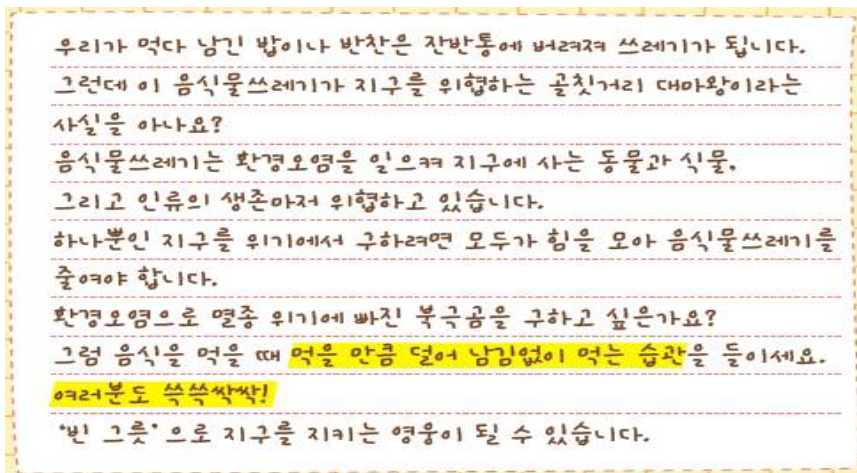 우리가 먹다 남긴 밥이나 반찬은 잔반통에 버려져 쓰레기가 됩니다.
그런데 이 음식물쓰레기가 지구를 위협하는 골칫거리 대마왕이라는
사실을 아나요?
음식물쓰레기는 환경오염을 일으켜 지구에 사는 동물과 식물,
그리고 인류의 생존마저 위협하고 있습니다.
하나뿐인 지구를 위기에서 구하려면 모두가 힘을 모아 음식물쓰레기를
줄여야 합니다.
환경오염으로 멸종 위기에 빠진 북극곰을 구하고 싶은가요?
그럼 음식을 먹을 때 먹을 만큼 덜어 남김없이 먹는 습관을 들이세요.
여러분도 쓱쓱싹싹!
'빈 그릇'으로 지구를 지키는 영웅이 될 수 있습니다.